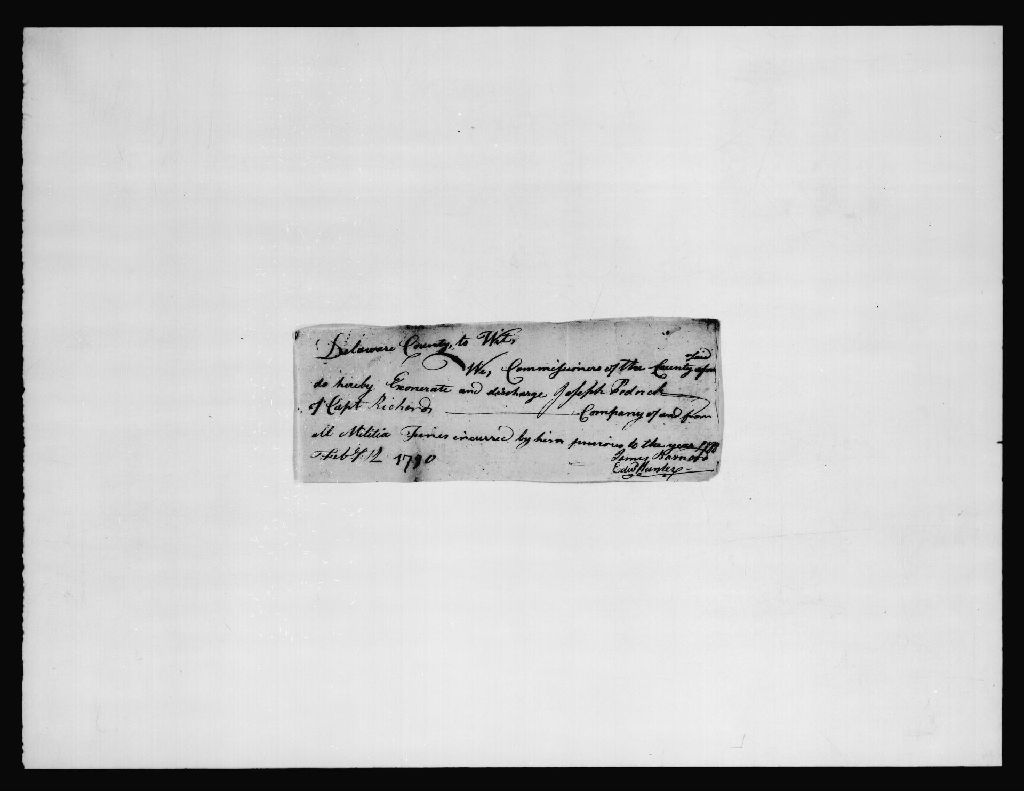 Delaware County, to Wit,
We, Commissioners of the County afore
said
do hereby Exonerate and discharge Joseph Pedrick
of Capt Richards Company of and from
all Militia Fines incurred by him previous to the year 1788
Feby 12 1790
James Barnard
Edwd Hunter